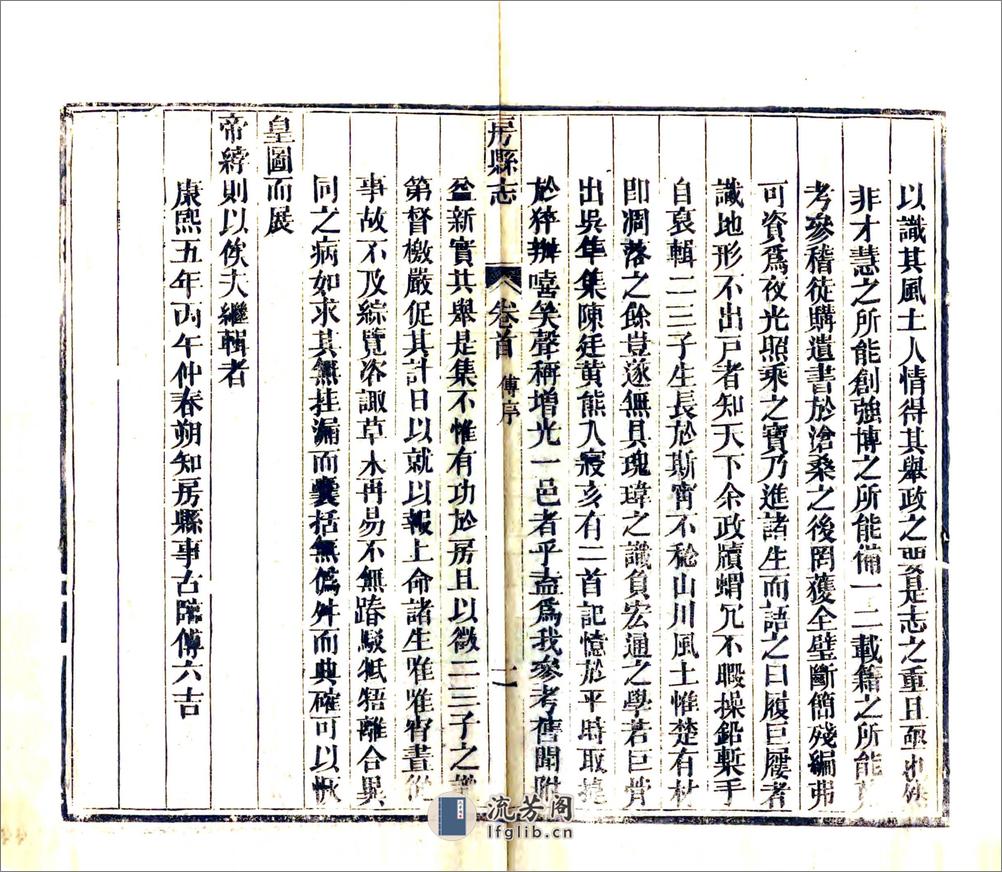 以識其風土人情得其舉政之要是志之重且亟也然
非才慧之所能創強博之所能備一二載籍之所能
考參稽徒購遺書於滄桑之後罔獲全璧斷簡殘編弗
可資爲夜光照乘之寶乃進諸生而語之曰履巨屨者
識地形不出戸者知天下余政牘蝟冗不暇操鉛槧手
自裒輯二三子生長於斯甯不稔山川風土惟楚有材
即凋落之餘豈遂無具瑰瑋之識負宏通之學若巨骨
出吳隼集陳廷黄熊入寢亥有二首記憶於平時取㨗
於猝辦嘻笑聲稱增光一邑者乎盍爲我參考舊聞附
益新實共舉是集不惟有功於房且以徵二三子之
第督檄嚴促其計日以就以報上命諸生唯唯宵晝從
事故不及綜覽咨諏草木再易不無踳駁牴牾離合異
同之病如求其無挂漏而囊括無僞舛而典確可以恢
皇圖而展
帝綍則以俟夫繼輯者
康熙五年丙午仲春朔知房縣事古傅六吉
房縣志 卷首 傅序 二
流芳阁
lfglib.cn